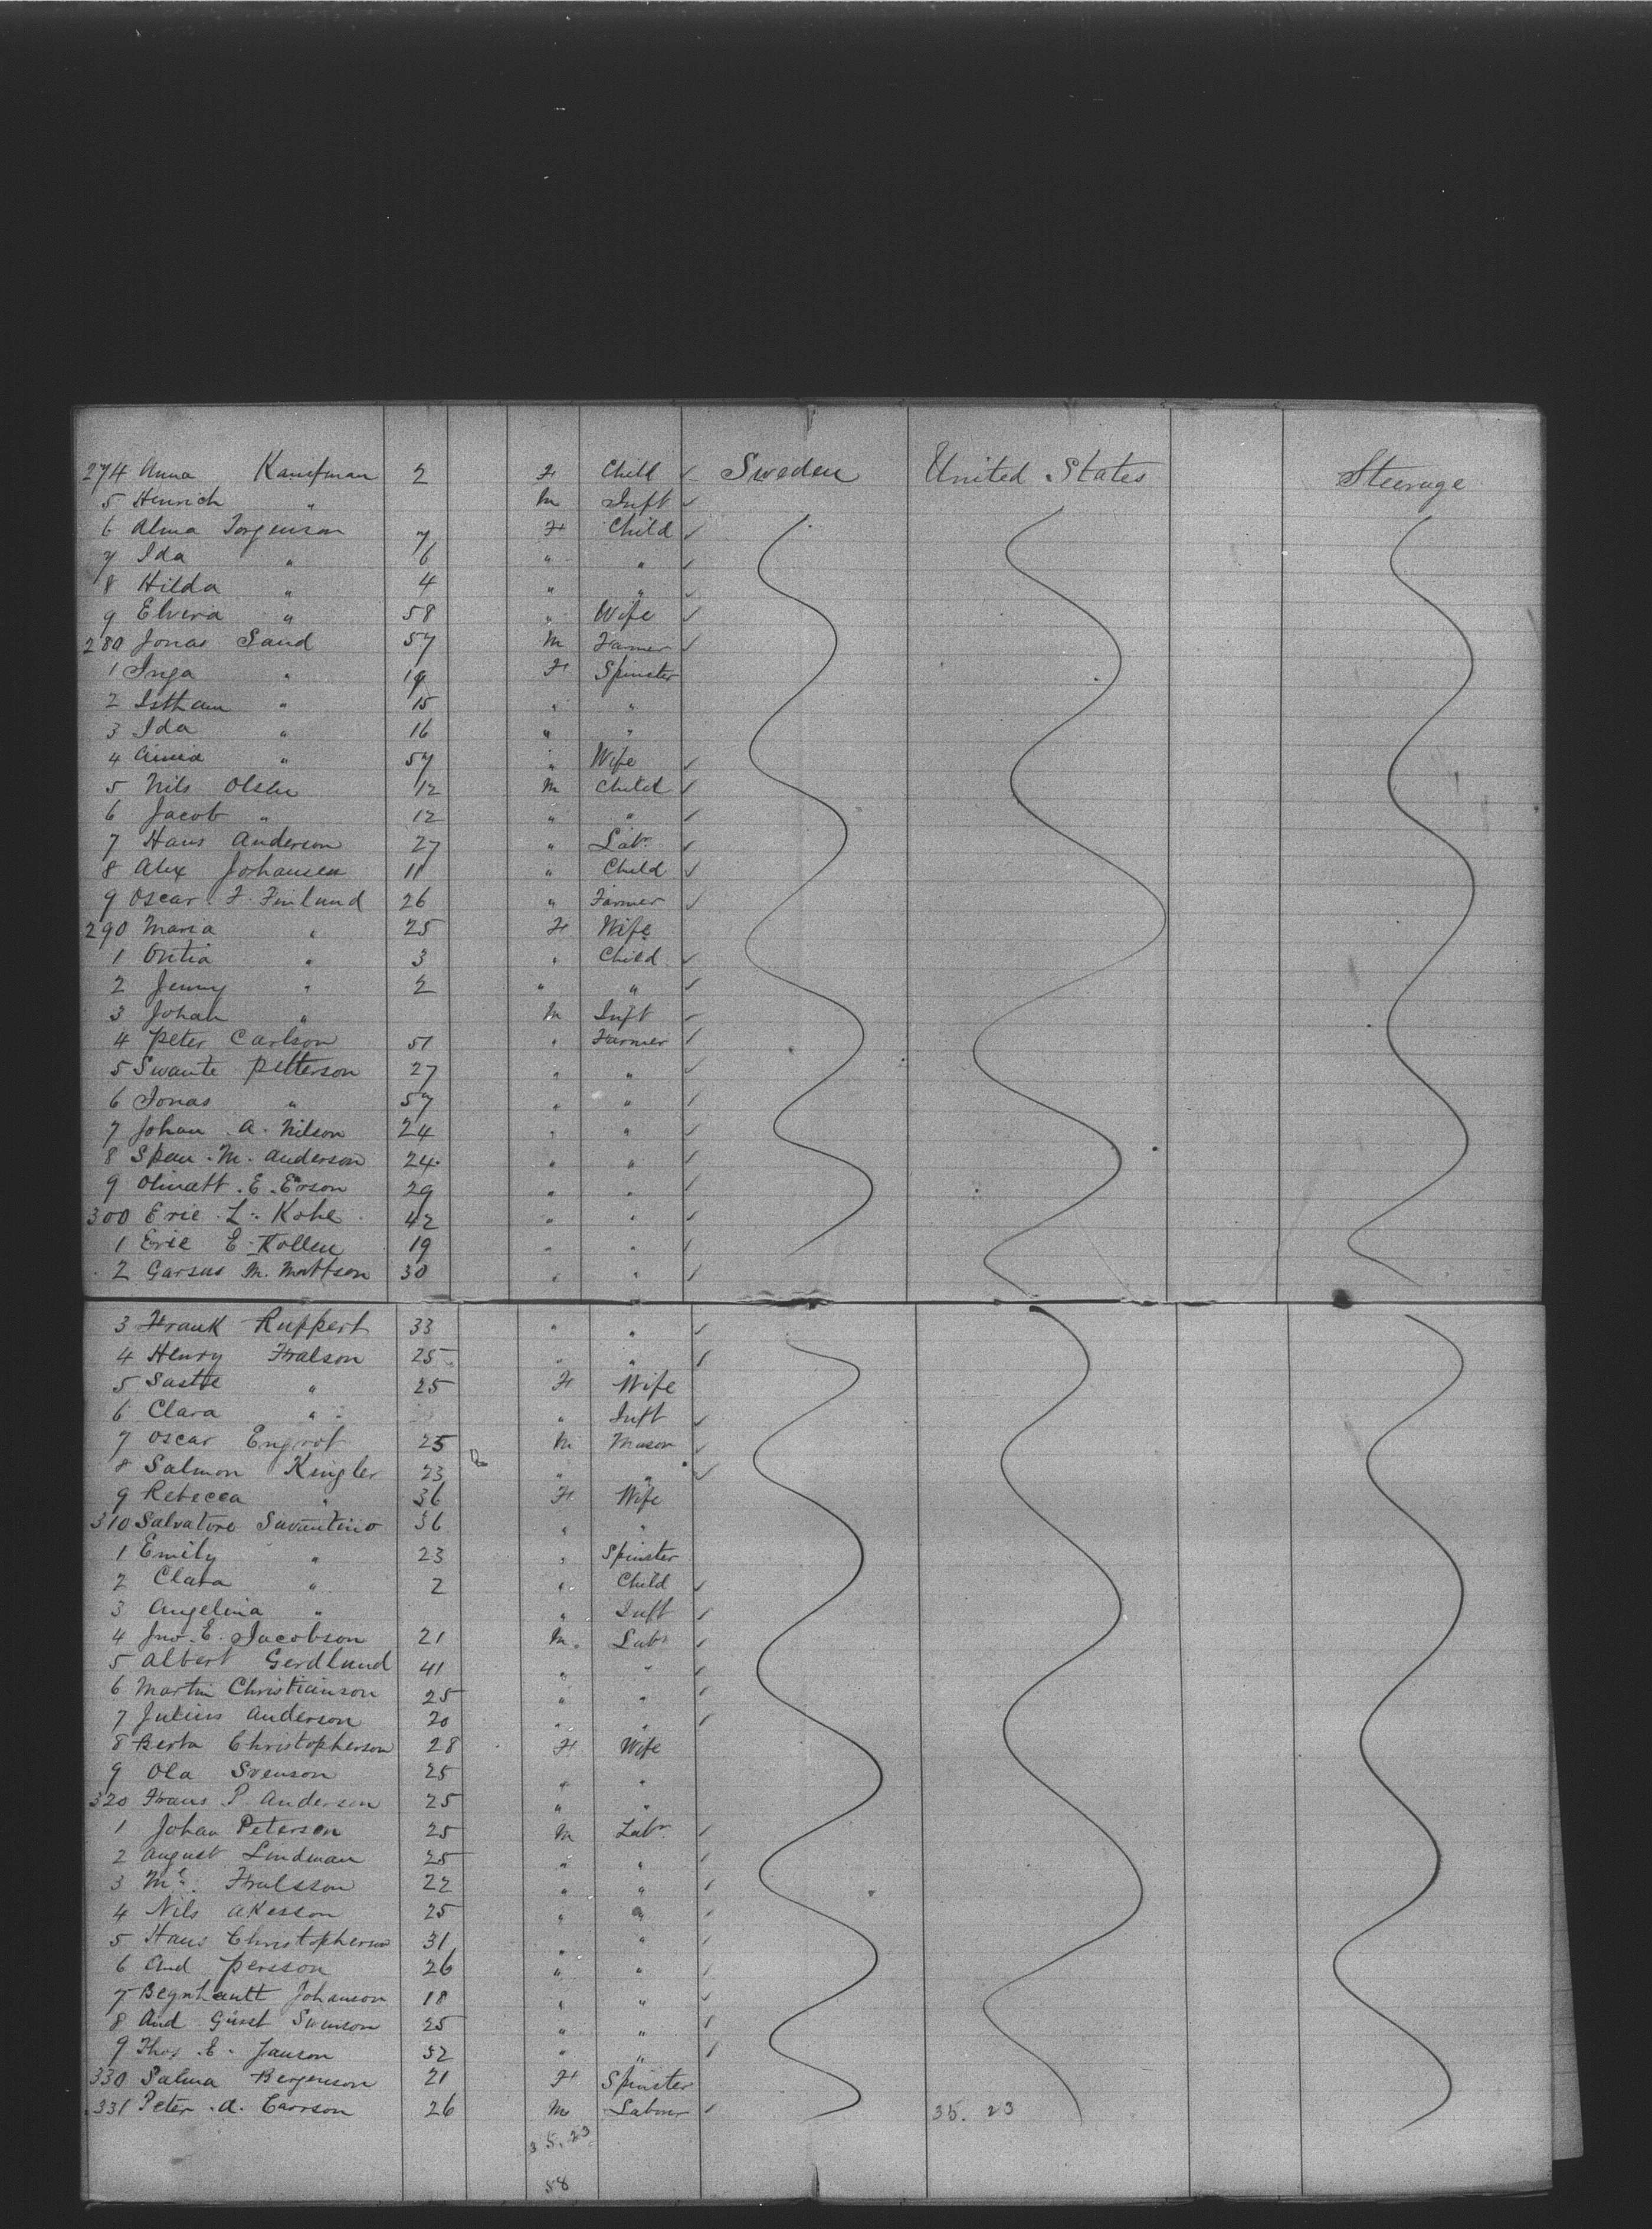 274 Anna Kaufman 2 F Child ✓ Sweden United States Steerage
5 Henrich " M Inft ✓
6 Alma Jorgenson 7 F Child ✓
7 Ida " 6 " " ✓
8 Hilda " 4 " " ✓
9 Elvira " 58 " Wife ✓
280 Jonas Sand 57 M Farmer ✓
1 Inga " 19 F Spinster
2 " 15 " "
3 Ida " 16 " "
4 " 57 " Wife ✓
5 Nils Olsen 12 M Child ✓
6 Jacob " 12 " " ✓
7 Hans Anderson 27 " Labr ✓
8 Alex Johansen 11 " Child ✓
9 Oscar F. Finlund 26 " Farmer ✓
290 Maria " 25 F Wife
1 " 3 " Child ✓
2 Jenny " 2 " " ✓
3 Johan " M Inft ✓
4 Peter Carlson 51 " Farmer ✓
5 Swante Petterson 27 " " ✓
6 Jonas " 57 " " ✓
7 Johan A. Nilson 24 " " ✓
8 M. Anderson 24 " " ✓
9 E. Erson 29 " " ✓
300 Eric L. Kohe 42 " " ✓
1 Eric E. Kollen 19 " " ✓
2 M. Mattson 30 " " ✓
3 Frank Ruppert 33 " " ✓
4 Henry Fralson 25 " " ✓
5 " 25 F Wife
6 Clara " " Inft ✓
7 Oscar 25 M Mason ✓
8 Salmon Kingler 23 " " ✓
9 Rebecca " 36 F Wife
310 Salvatore Savantino 36 " "
1 Emily " 23 " Spinster
2 Clara " 2 " Child ✓
3 Angelina " " Inft ✓
4 Jno. E. Jacobson 21 M. Labr ✓
5 Albert Gerdlund 41 " " ✓
6 Martin Christianson 25 " " ✓
7 Julius Anderson 20 " " ✓
8 Berta Christopherson 28 F Wife
9 Ola Svenson 25 " "
320 Frans P. Anderson 25 " "
1 Johan Peterson 25 M Labr ✓
2 August Lindman 25 " " ✓
3 Fralsson 22 " " ✓
4 Nils Akesson 25 " " ✓
5 Hans Christopherson 31 " " ✓
6 And Persson 26 " " ✓
7 Johanson 18 " " ✓
8 And Gust Swenson 25 " " ✓
9 Thos. E. Janson 52 " " ✓
330 Salma Bergenson 21 F Spinster
331 Peter A. Carrson 26 M Labour ✓ 35. 23
35. 23
58